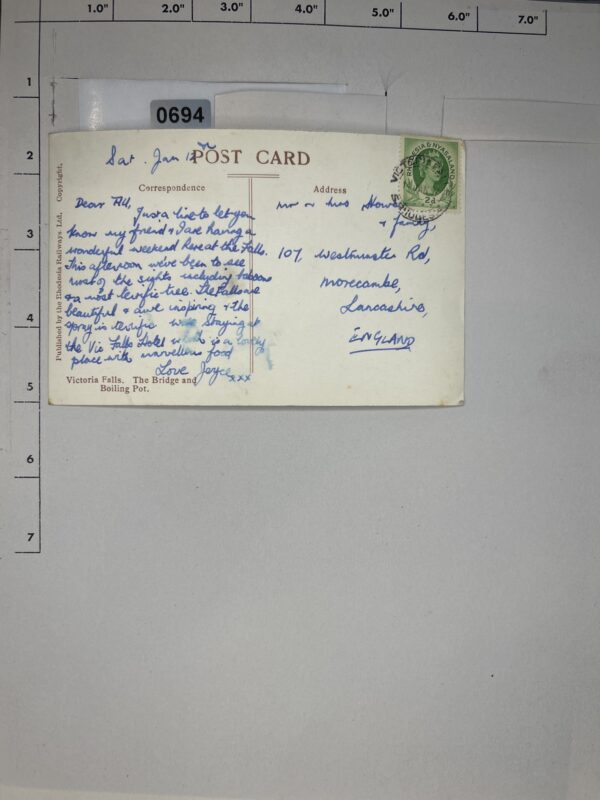 1.0" 2.0" 3.0" 4.0" 5.0" 6.0" 7.0"
1
2
3
4
5
6
7
0694
Sat. Jan 12th
POST CARD
Correspondence
Address
RHODESIA & NYASALAND
2d
Dear All,
Just a line to let you
know my friend & I are having a
wonderful weekend here at the Falls.
This afternoon we've been to see
most of the sights including baboons
& a most terrific tree. The Falls are
beautiful & awe inspiring & the
spray is terrific. We're staying at
the Vic Falls Hotel which is a lovely
place with marvellous food
Love Joyce xxx
Mr & Mrs
& family,
107, Westminster Rd,
Morecambe,
Lancashire,
ENGLAND
Victoria Falls. The Bridge and
Boiling Pot.
Published by the Rhodesia Railways Ltd. Copyright.